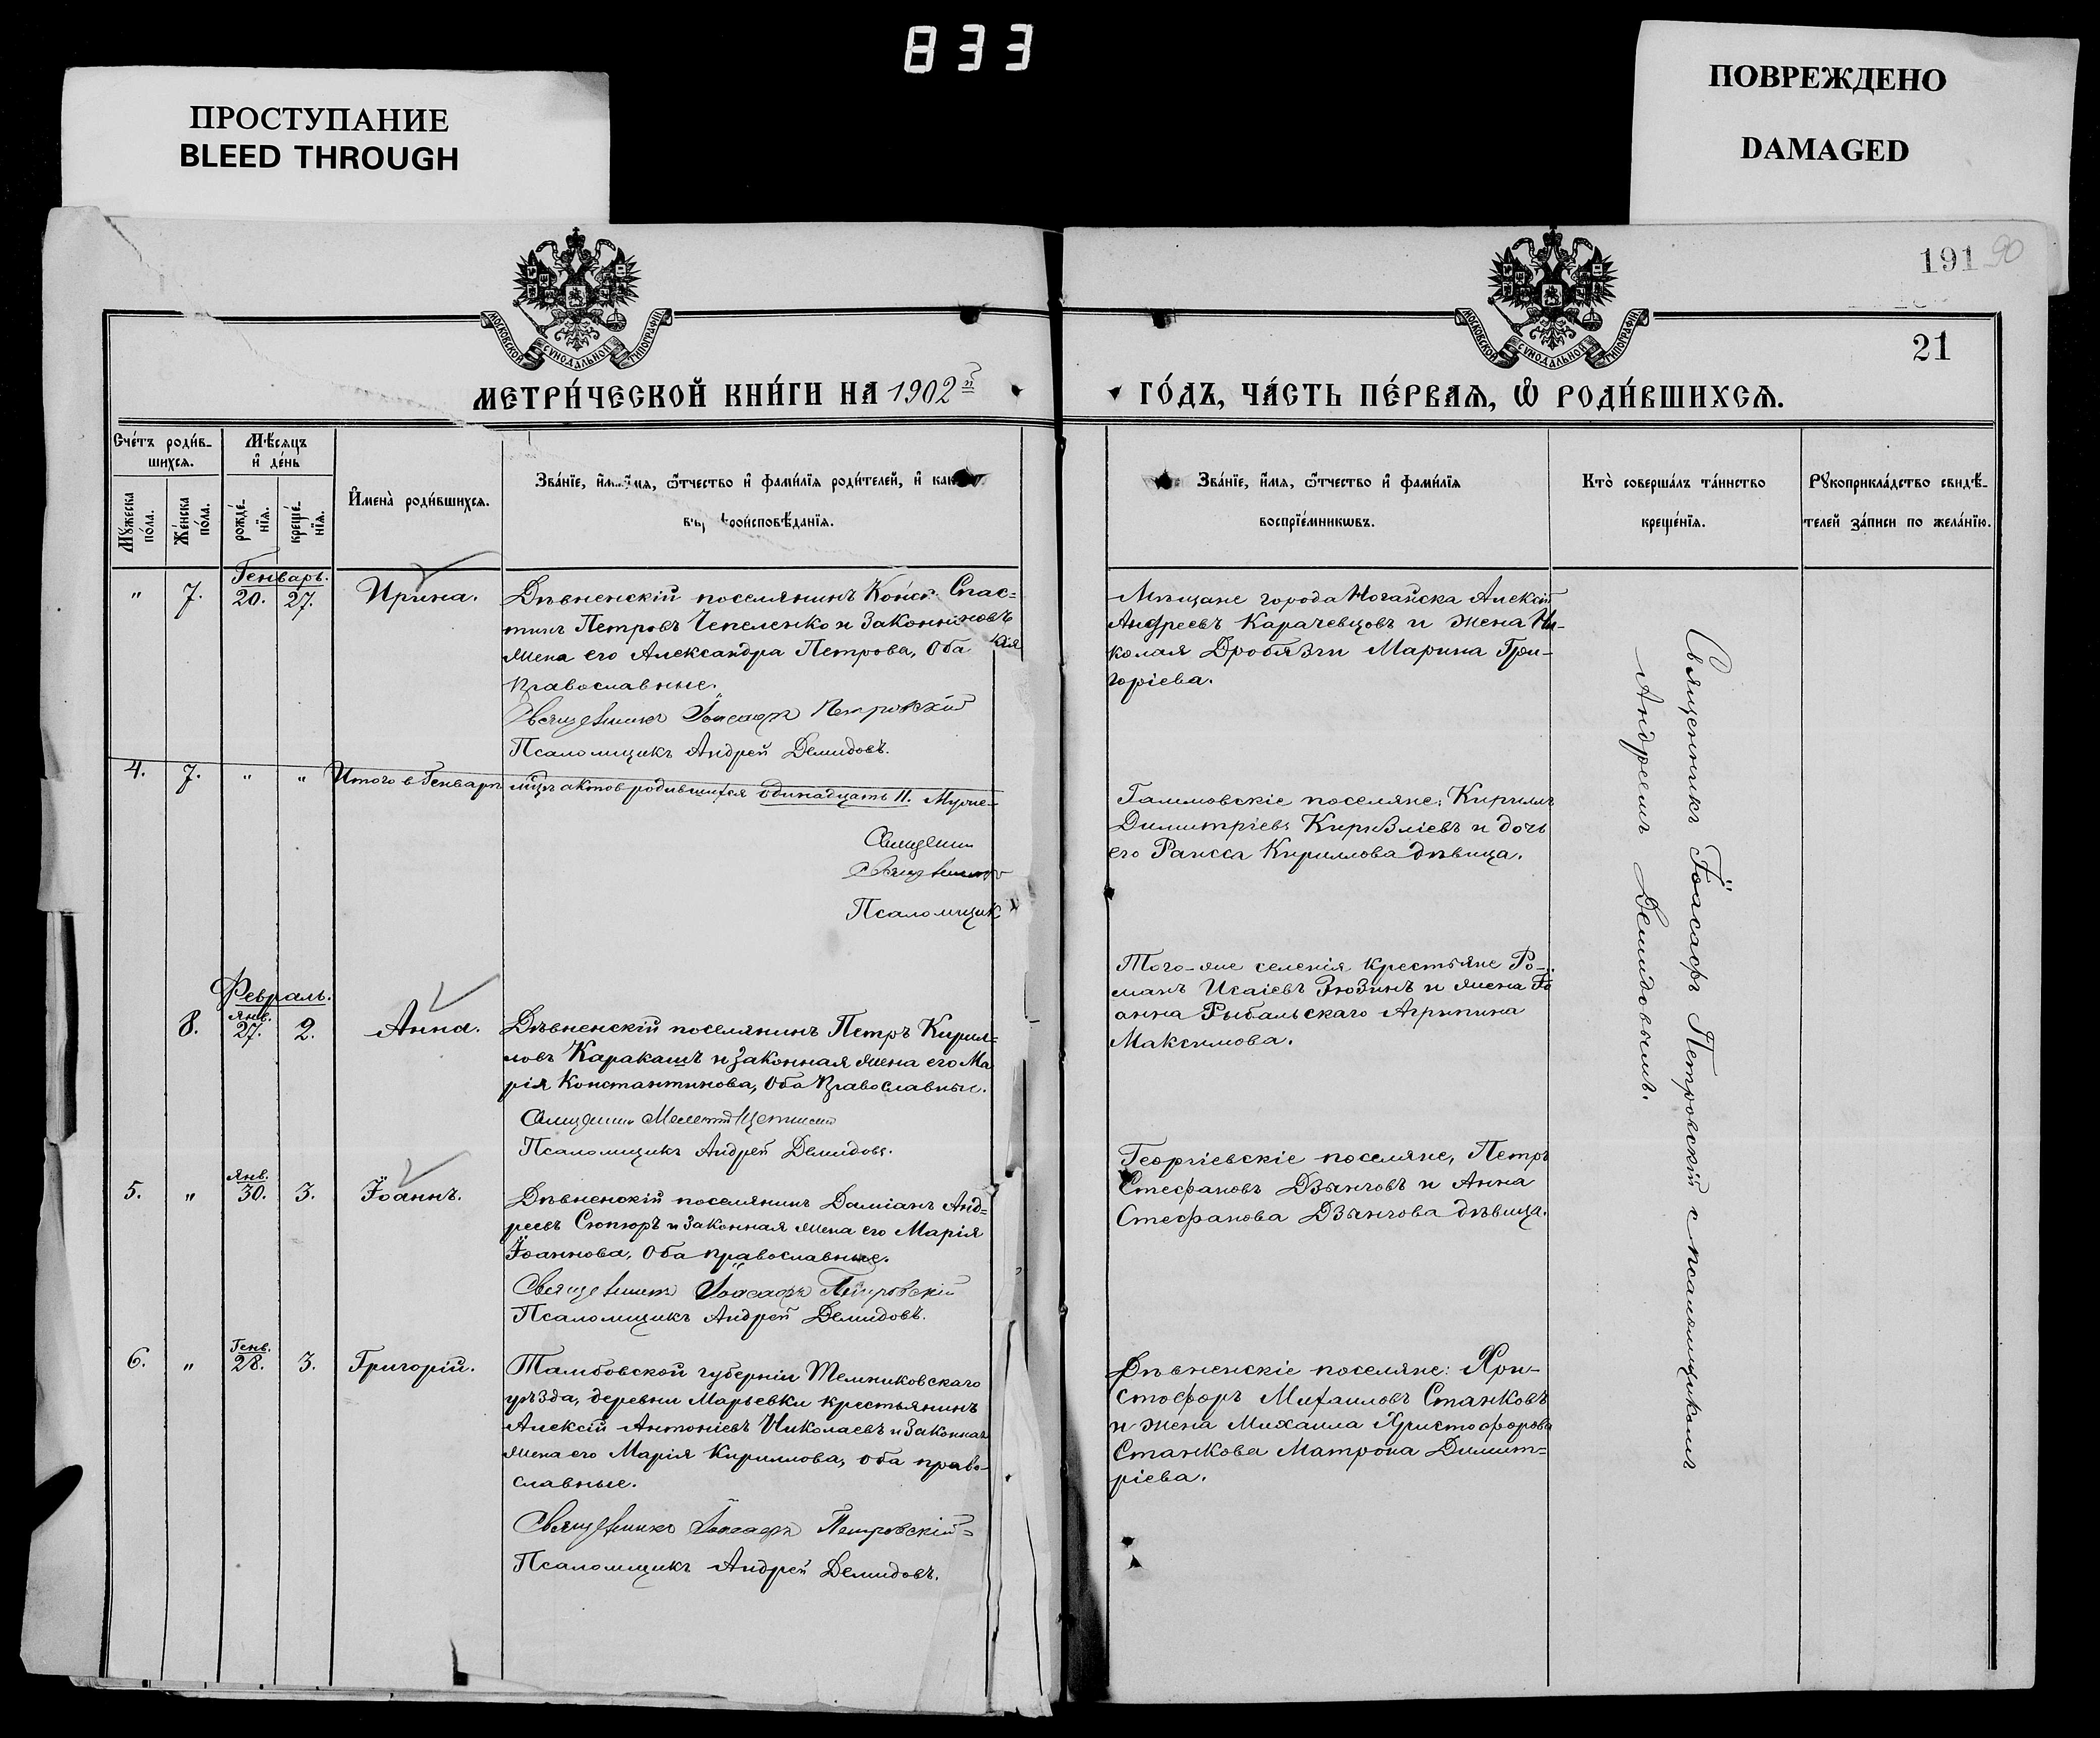 833
ПРОСТУПАНИЕ
BLEED THROUGH
ПОВРЕЖДЕНО
DAMAGED
191 90
21
МОСКОВСКОЙ СѴНОДАЛЬНОЙ ТИПОГРАФІИ
МОСКОВСКОЙ СѴНОДАЛЬНОЙ ТИПОГРАФІИ
МЕТРИ́ЧЕСКОЙ КНИ́ГИ НА 1902й
ГО́ДЪ, ЧА́СТЬ ПЕ́РВАЯ, Ѿ РОДИ́ВШИХСЯ.
Сче́тъ роди́в-
шихся.
Мѣ́сяцъ
и҆ де́нь
Мꙋжеска
по́ла.
Же́нска
по́ла.
рожде́-
нїя.
креще́-
нїя.
И҆мена̀ роди́вшихся.
Зва́нїе, и҆́мя, ѻ҆́тчество и҆ фами́лїя роди́телей, и҆
вѣроисповѣ́данїя.
Зва́нїе, и҆́мя, ѻ҆́тчество и҆ фами́лїя
воспрїе́мникѡвъ.
Кто̀ соверша́лъ та́инство
креще́нїя.
Рꙋкоприкла́дство свидѣ́-
телей за́писи по жела́нїю.
Генварь.
" 7. 20. 27. Ирина.
Дѣвненскій поселянинъ Конс
тинъ Петровъ Чепеленко и законн
жена его Александра Петрова, оба
православные.
Священникъ Іоасафъ Петровскій
Псаломщикъ Андрей Демидовъ.
Мѣщане города Ногайска Алексій
Андреевъ Карачевцовъ и жена Ни-
колая Дробязги Марина Гри-
горіева.
4. 7. " " Итого в Генварѣ мцѣ актов родившихся одинадцать 11. Муже-
Священник
Псаломщик
Гаммовскіе поселяне: Кириллъ
Димитріевъ и дочь
его Раисса Кириллова дѣвица.
Февраль.
8. Янв. 27. 2. Анна.
Дѣвненскій поселянинъ Петръ Кирил=
ловъ Каракашъ и законная жена его Ма
рія Константинова, оба православные.
Псаломщикъ Андрей Демидовъ.
Того-же селенія крестьяне Ро-
манъ Исаіевъ Зюзинъ и жена Іо
анна Рыбальскаго Агрипина
Максимова.
5. " Янв. 30. 3. Іоаннъ.
Дѣвненскій поселянинъ Даміанъ Анд=
реевъ Сюпюръ и законная жена его Марія
Іоаннова, оба православные.
Священникъ Іоасафъ Петровскій
Псаломщикъ Андрей Демидовъ.
Георгіевскіе поселяне, Петръ
Стефановъ Дзынговъ и Анна
Стефанова Дзынгова дѣвица.
6. " Генв. 28. 3. Григорій.
Тамбовской губерніи Темниковскаго
уѣзда, деревни Марьевки крестьянинъ
Алексій Антоніевъ Николаевъ и законная
жена его Марія Кириллова, оба право-
славные.
Священникъ Іоасафъ Петровскій
Псаломщикъ Андрей Демидовъ.
Дѣвненскіе поселяне: Хри-
стофоръ Михаиловъ Станковъ
и жена Михаила Христофорова
Станкова Матрона Димит=
ріева.
Священникъ Іоасафъ Петровскій с псаломщикомъ
Андреемъ Демидовымъ.